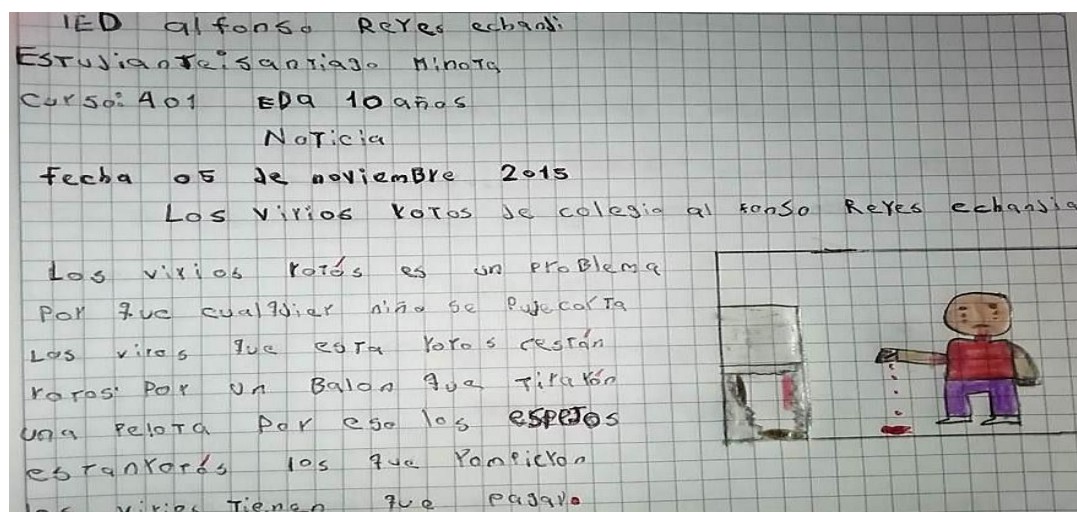 IED alfonso Reyes echandi
Estudiante: santiago Minota
Curso: 401 EDa 10 años
Noticia
fecha 05 de noviembre 2015
Los virios rotos de colegio al fonso Reyes echandia
Los virios rotós es un problema
Por que cualquier niño se Pude corta
Los viros que esta rotos cestán
rotos: Por un Balon que Tirarón
una Pelota Por eso los espejos
estanrotós los que Rompieron
los virios Tienen que pagar.